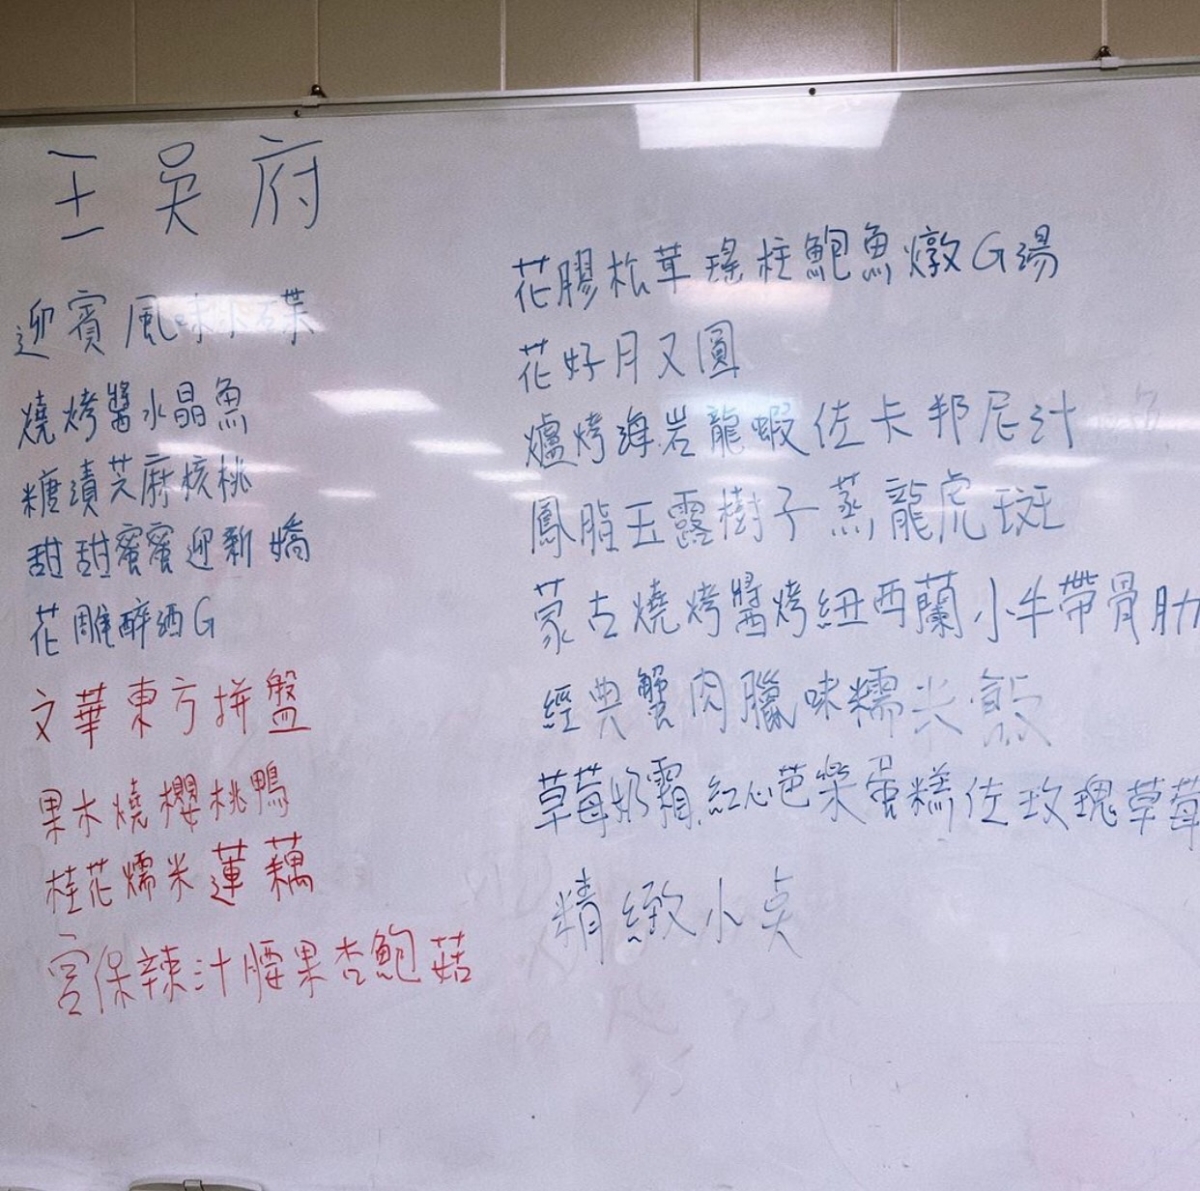 王吳府
迎賓風味小碟
燒烤醬水晶魚
糖漬芝麻核桃
甜甜蜜蜜迎新嬌
花雕醉酒G
文華東方拼盤
果木燒櫻桃鴨
桂花糯米蓮藕
宮保辣汁腰果杏鮑菇
花膠松茸瑤柱鮑魚燉G湯
花好月又圓
爐烤海岩龍蝦佐卡邦尼汁
鳳脂玉露樹子蒸龍虎斑
蒙古燒烤醬烤紐西蘭小牛帶骨肋
經典蟹肉臘味糯米飯
草莓奶霜紅心芭樂蛋糕佐玫瑰草莓
精緻小点